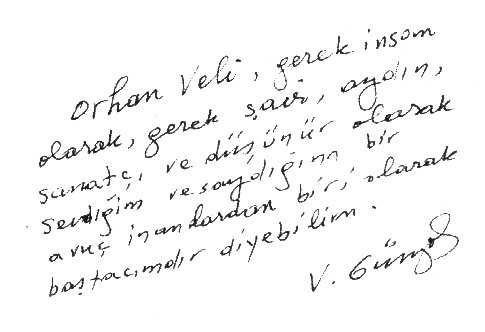 Orhan Veli, gerek insan
olarak, gerek şair, aydın,
sanatçı ve düşünür olarak
sevdiğim ve saydığım bir
avuç insandan biri olarak
baştacımdır diyebilirim.
V. Günyol